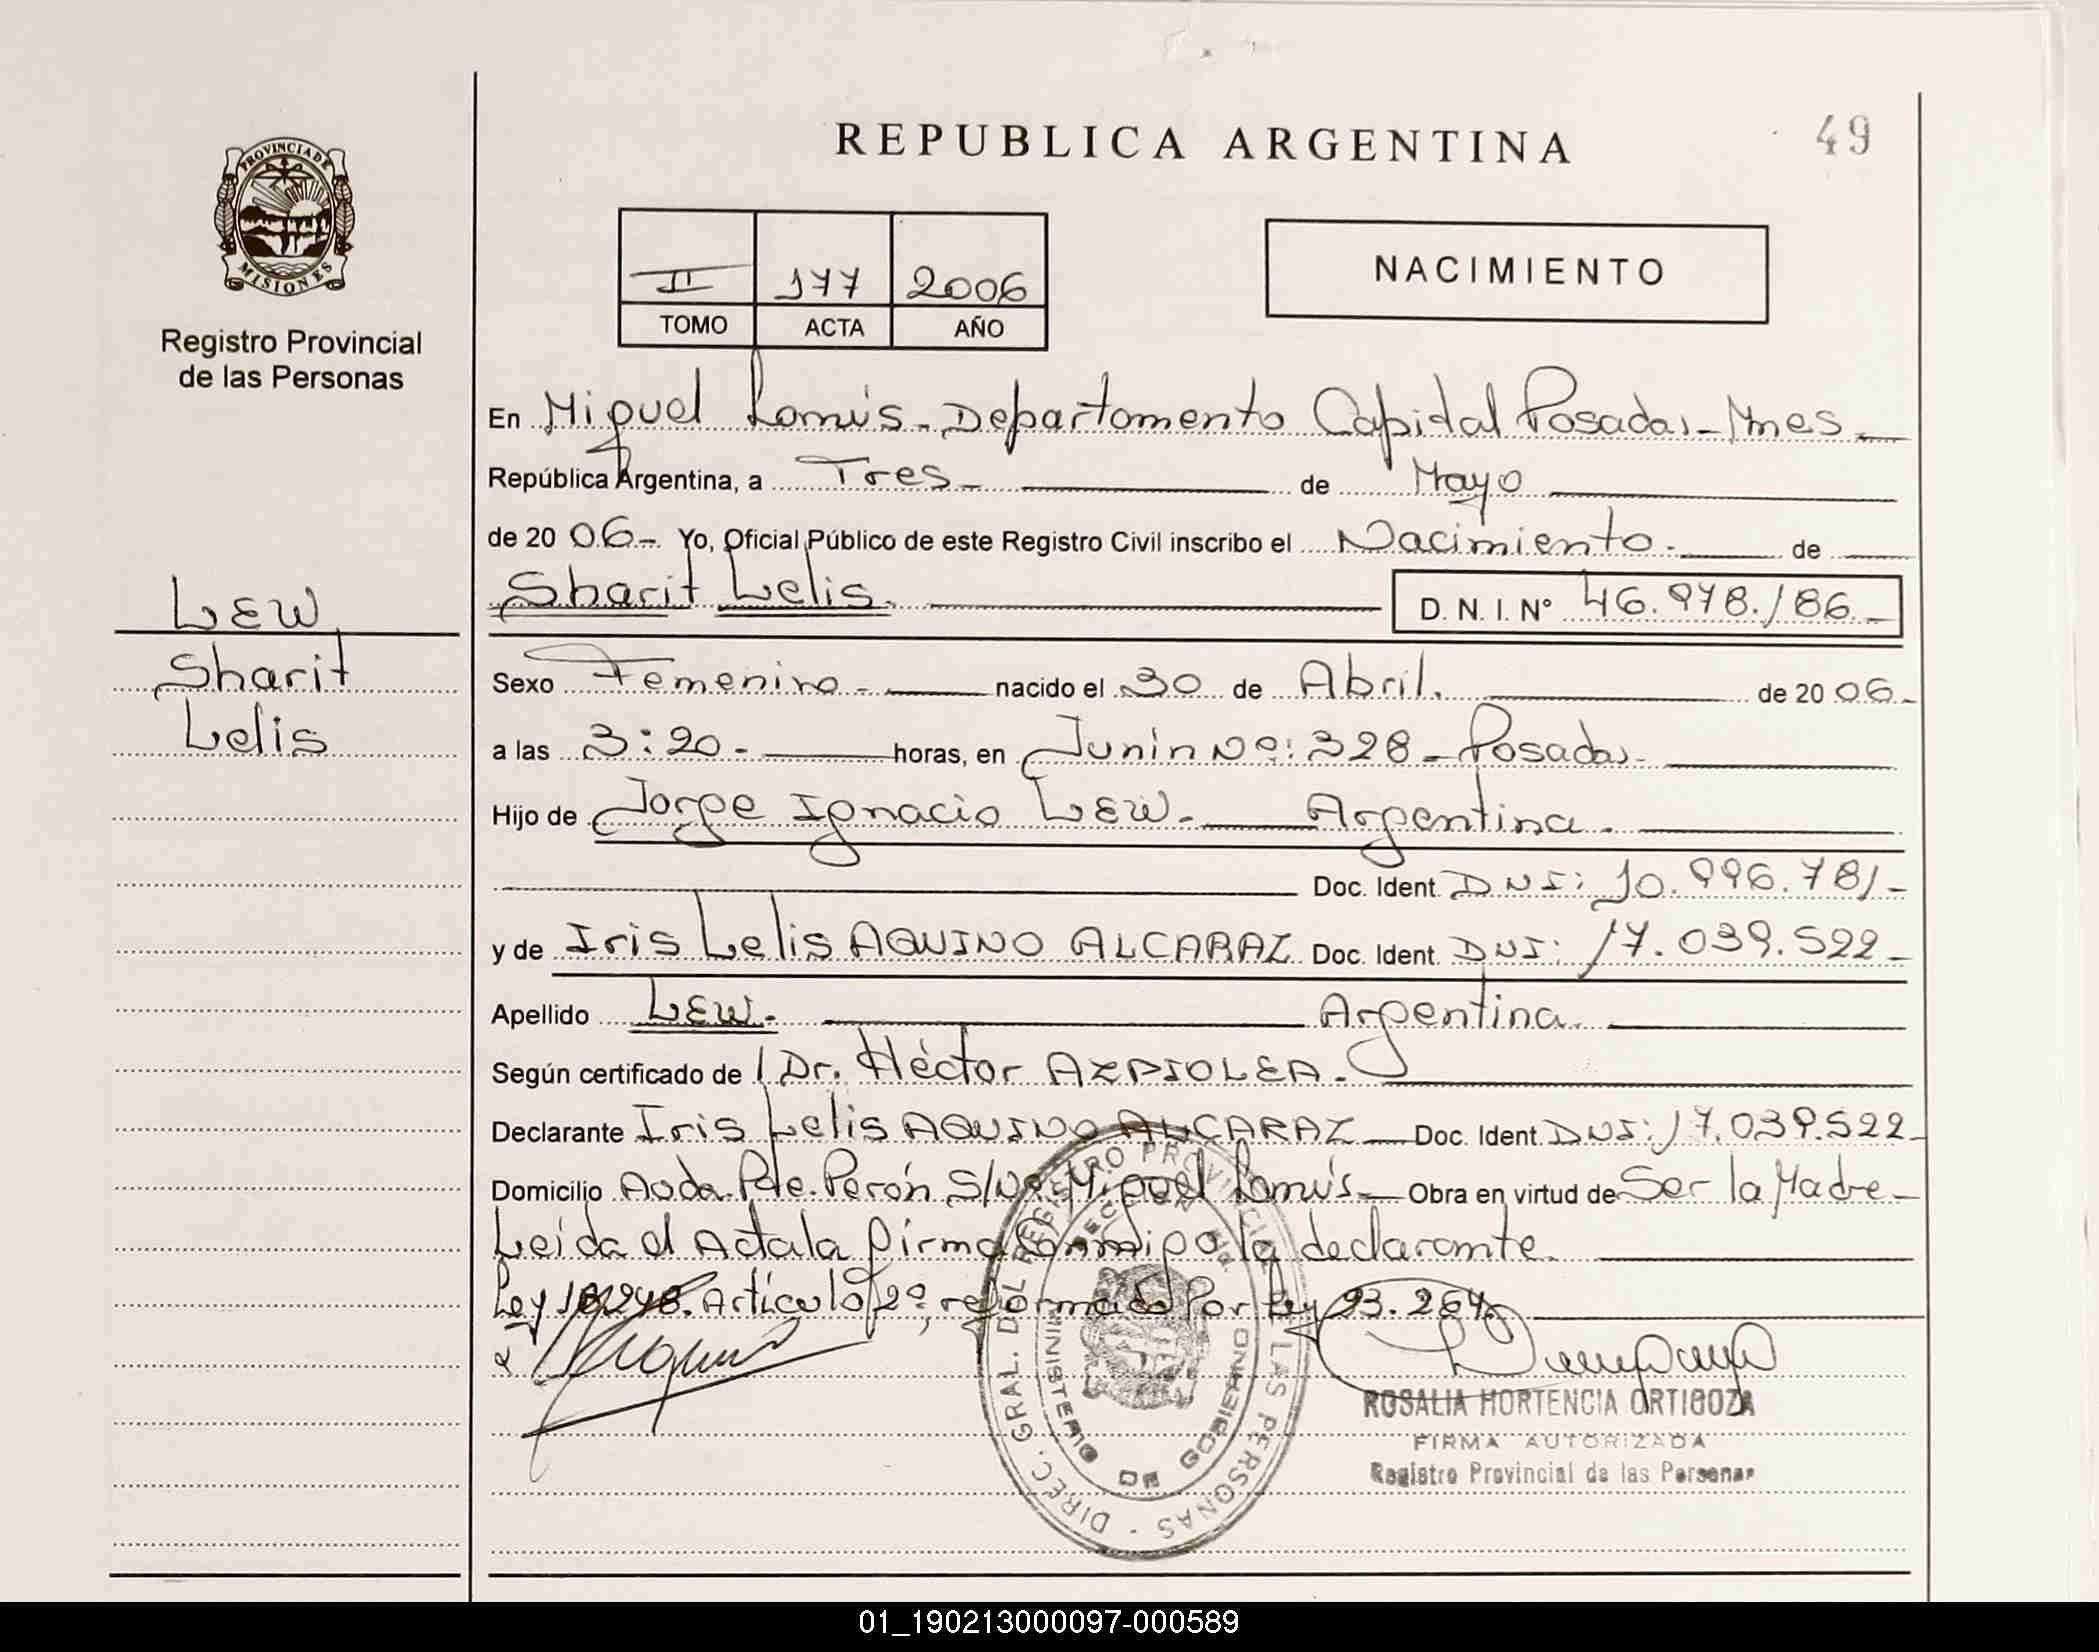 REPUBLICA ARGENTINA
49
PROVINCIA DE
MISIONES
Registro Provincial
de las Personas
II 177 2006
TOMO ACTA AÑO
NACIMIENTO
En Miguel Lanús - Departamento Capital Posadas - Mnes -
República Argentina, a Tres - de Mayo
de 20 06 - Yo, Oficial Público de este Registro Civil inscribo el Nacimiento - de
Sharit Lelis. D. N. I. Nº 46.978.186. -
LEW
Sharit
Lelis
Sexo Femenino - nacido el 30 de Abril. de 20 06 -
a las 3:20 - horas, en Junín Nº: 328 - Posadas -
Hijo de Jorge Ignacio LEW - Argentina.
Doc. Ident. DNI: 10.996.781 -
y de Iris Lelis AQUINO ALCARAZ Doc. Ident. DNI: 17.039.522 -
Apellido LEW - Argentina.
Según certificado de Dr. Héctor
Declarante Iris Lelis AQUINO ALCARAZ Doc. Ident. DNI: 17.039.522 -
Domicilio Avda. Pte. Perón S/Nº Miguel Lanús - Obra en virtud de Ser la Madre -
Leída el Acta la firma conmigo la declarante.
Ley 18.248. Artículo 2º, reformado Por Ley 23.264
DIREC. GRAL. DEL REGISTRO PROVINCIAL DE LAS PERSONAS -
MINISTERIO DE GOBIERNO
ROSALIA HORTENCIA ORTIGOZA
FIRMA AUTORIZADA
Registro Provincial de las Personas
01_190213000097-000589